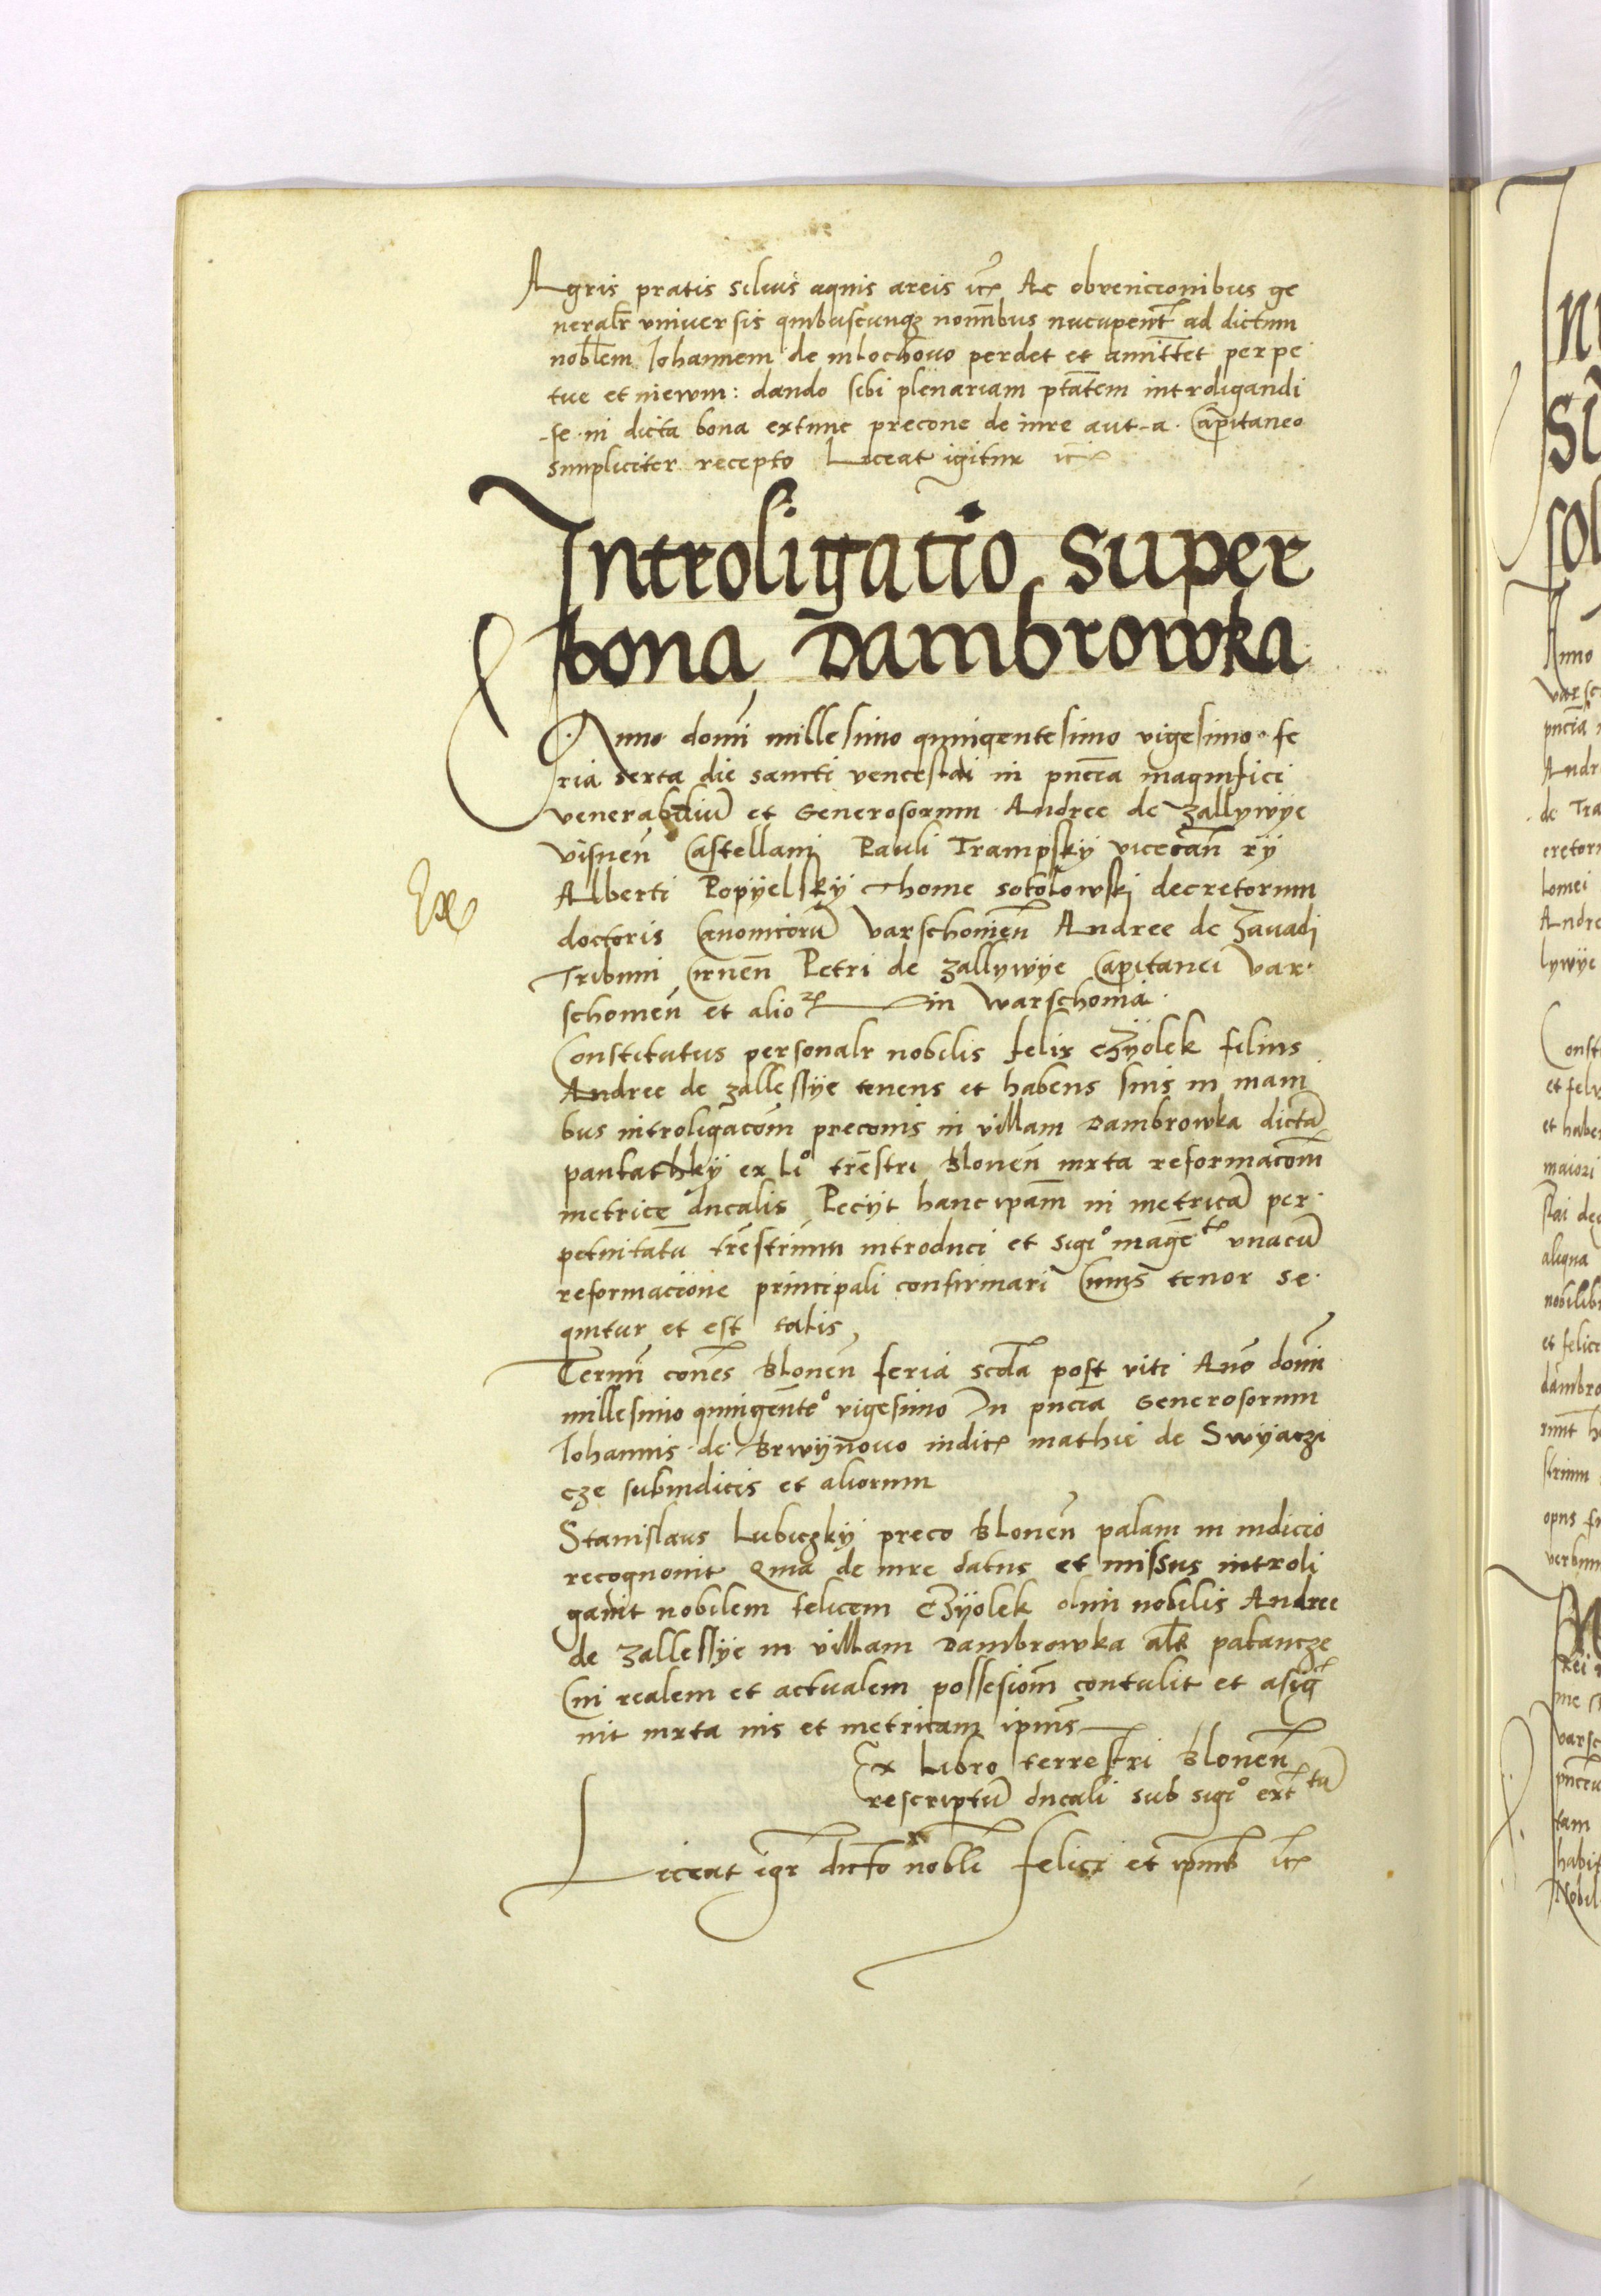 Agris pratis siluis aquis areis itc̃ Ac obvencionibus ge
neralr̃ vniuersis quibuscunqz nomĩbus nucupent̃ ad dictum
nobl̃em Iohannem de mlochouo perdet et amittet perpe
tue et in ewm: dando sibi plenariam ptãtem introligandi
se in dicta bona extunc precone de iure aut a Capitaneo
simpliciter recepto Liceat igitur itc̃
Introligacio super
bona Dambrowka
Anno domĩ millesimo quingentesimo vigesimo fe
ria sexta die sancti venceslai in pñcia magnifici
venerabiliũ et Generosorum Andree de zallywye
visneñ Castellani Pauli Trampsky vicecañ ry
Alberti Popyelsky Thome sokolowski decretorum
doctoris Canonicorũ varschouieñ Andree de Zauadi
Tribuni Cirneñ Petri de zallywye Capitanei var
schouieñ et alioꝝ in warschouia
Constitutus personalr nobilis felix Czyolek filius
Andree de zallessye tenens et habens suis in mani
bus introligacoĩm preconis in villam Dambrowka dictã
pantathky ex lio trẽstri Bloneñ iuxta reformacoĩm
metrice ducalis Peciit hanc ipãm in metricã per
petuitatũ trẽstrium introduci et sigo mageti unacũ
reformacione principali confirmari Cuius tenor se
quitur et est talis
Termĩ coñes Bloneñ feria scda post viti Año domĩ
millesimo quingeñto vigesimo In pñcia Generosorum
Iohannis de Brwynouo iudic̃ mathie de Swyaczi
cze subiudicis et aliorum
Stanislaus Lubiczky preco Bloneñ palam in iudicio
recognouit Quia de iure datus et missus introli
gauit nobilem felicem Czyolek olim nobilis Andree
de zallessye in villam Dambrowka als patancze
Cui realem et actualem possesioĩm contulit et asig
nit iuxta uis et metricam ipius
Ex Libro terrestri Bloneñ
rescriptũ ducali sub sigo extᵗᵘ
Liceat igr̃ dicto nobli felici et ipius itc̃
Ex